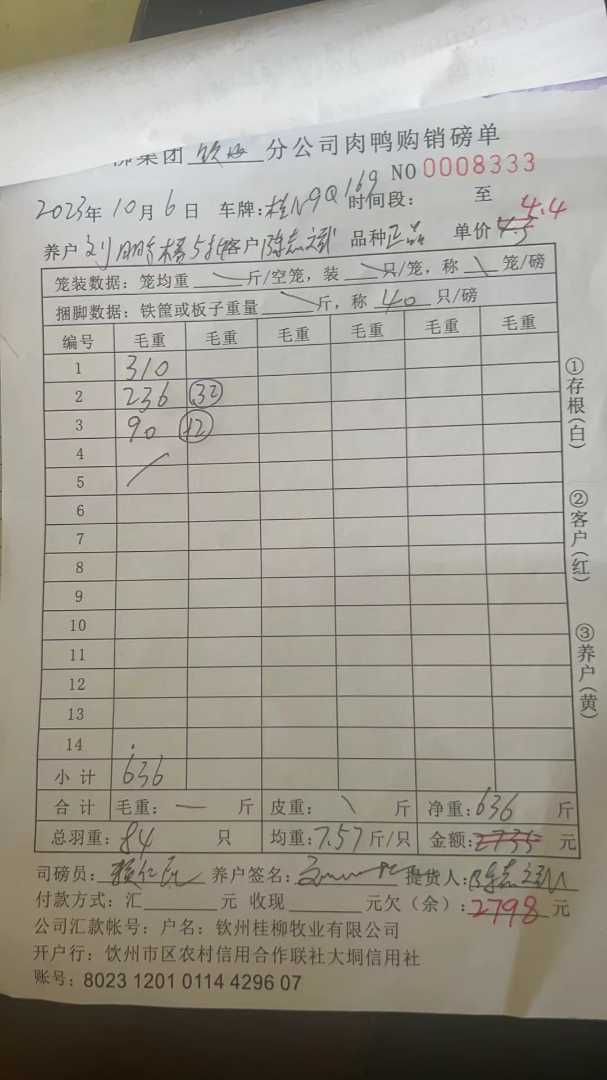 柳集团 钦州 分公司肉鸭购销磅单
NO 0008333
2023年 10月 6日 车牌:桂N9Q169 时间段: 至
4.4
养户 客户 陈志斌 品种 正品 单价 4.5
笼装数据:笼均重 斤/空笼,装 只/笼,称 笼/磅
捆脚数据:铁筐或板子重量 斤,称 40 只/磅
编号 毛重 毛重 毛重 毛重 毛重 毛重
1 310
2 236 32
3 90 12
4
5
6
7
8
9
10
11
12
13
14
小计 636
合计 毛重: — 斤 皮重: \ 斤 净重:636 斤
总羽重:84 只 均重:7.57斤/只 金额:2735 元
司磅员: 养户签名: 提货人:陈志斌
付款方式:汇 元 收现 元欠(余):2798 元
公司汇款帐号:户名:钦州桂柳牧业有限公司
开户行:饮州市区农村信用合作联社大垌信用社
账号:8023 1201 0114 4296 07
①存根(白)
②客户(红)
③养户(黄)